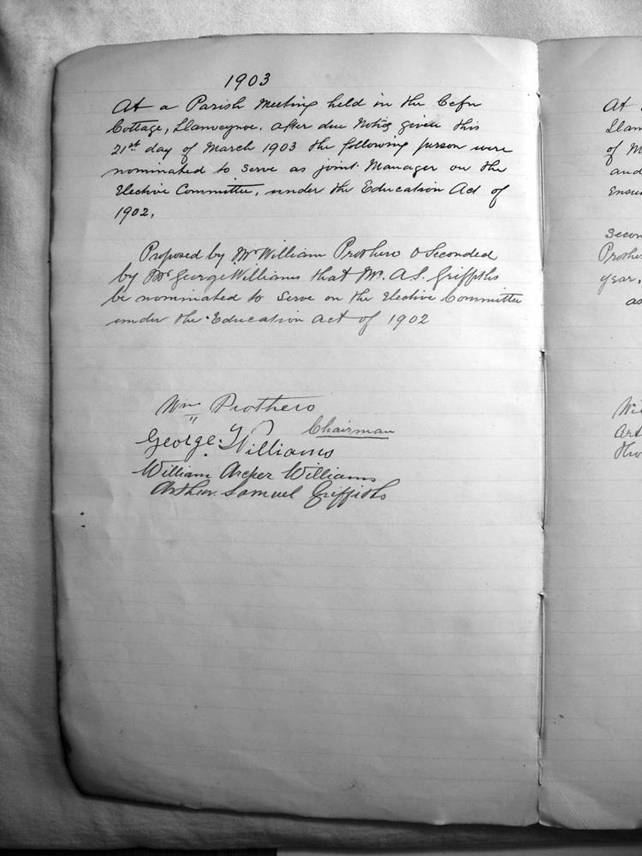 1903
At a Parish Meeting held in the Cefn
Cottage, Llanveynoe. after due Notice given this
21st day of March 1903 the following person were
nominated to serve as joint Manager on the
Elective Committee, under the Education Act of
1902.
Proposed by Mr William Prothero & Seconded
by Mr George Williams that Mr. A.S. Griffiths
be nominated to serve on the Elective Committee
under the Education Act of 1902
Wm Prothero
Chairman
George Williams
William Williams
Arthur Samuel Griffiths
At
Llan
of M
and
Ensu
Secon
Prothe
year,
as
Wi
Art